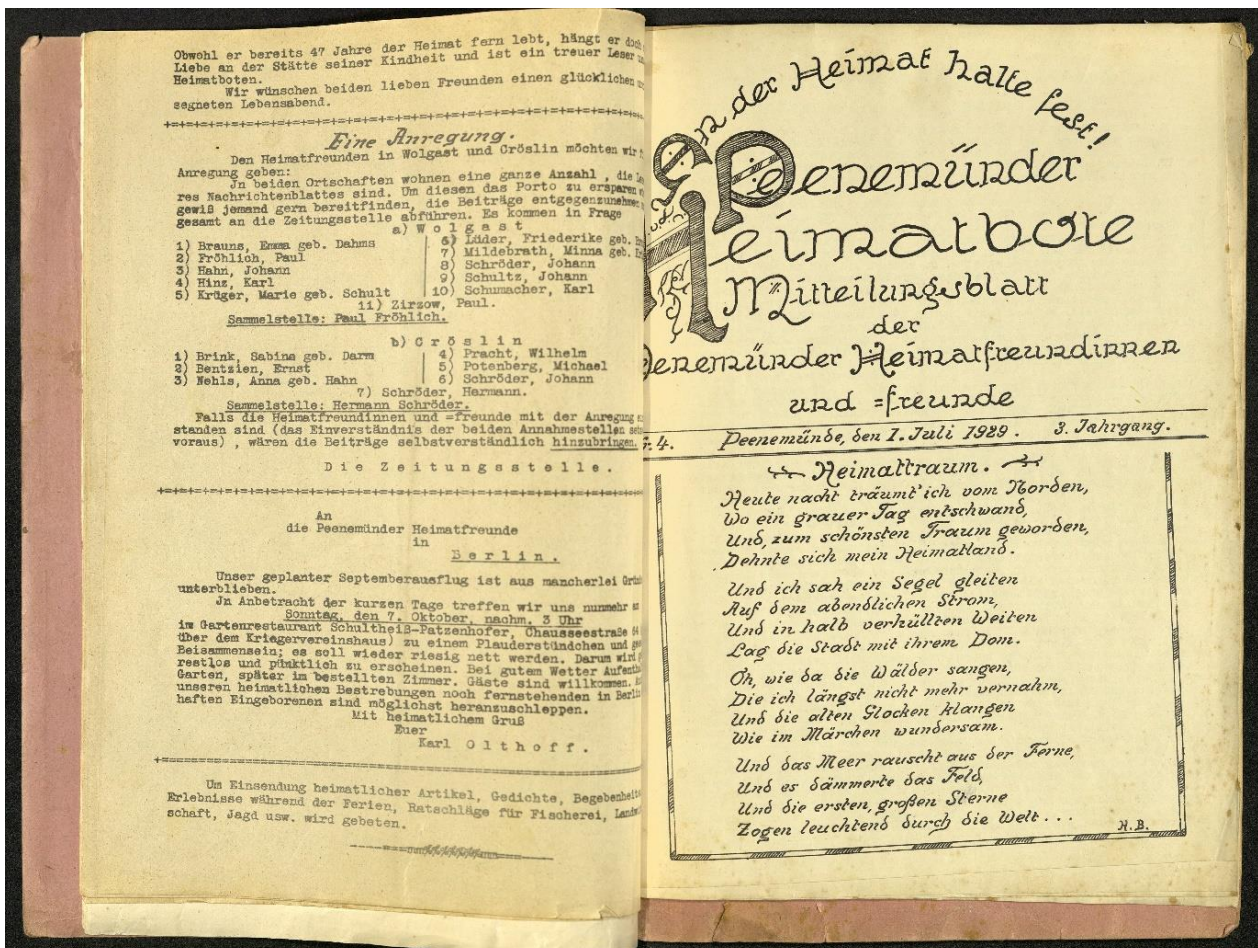 Obwohl er bereits 47 Jahre der Heimat fern lebt, hängt er doch
Liebe an der Stätte seiner Kindheit und ist ein treuer Leser
Heimatboten.
Wir wünschen beiden lieben Freunden einen glücklichen
segneten Lebensabend.
Eine Anregung.
Den Heimatfreunden in Wolgast und Cröslin möchten wir
Anregung geben:
Jn beiden Ortschaften wohnen eine ganze Anzahl , die
res Nachrichtenblattes sind. Um diesen das Porto zu ersparen
gewiß jemand gern bereitfinden, die Beiträge entgegenzunehmen
gesamt an die Zeitungsstelle abführen. Es kommen in Frage
a) W o l g a s t
1) Brauns, Emma geb. Dahms
2) Fröhlich, Paul
3) Hahn, Johann
4) Hinz, Karl
5) Krüger, Marie geb. Schult
6) Lüder, Friederike geb.
7) Mildebrath, Minna geb.
8) Schröder, Johann
9) Schultz, Johann
10) Schumacher, Karl
11) Zirzow, Paul.
Sammelstelle: Paul Fröhlich.
b) C r ö s l i n
1) Brink, Sabina geb. Darm
2) Bentzien, Ernst
3) Nehls, Anna geb. Hahn
4) Pracht, Wilhelm
5) Potenberg, Michael
6) Schröder, Johann
7) Schröder, Hermann.
Sammelstelle: Hermann Schröder.
Falls die Heimatfreundinnen und =freunde mit der Anregung
standen sind (das Einverständnis der beiden Annahmestellen
voraus) , wären die Beiträge selbstverständlich hinzubringen.
D i e Z e i t u n g s s t e l l e .
An
die Peenemünder Heimatfreunde
in
B e r l i n .
Unser geplanter Septemberausflug ist aus mancherlei
unterblieben.
Jn Anbetracht der kurzen Tage treffen wir uns nunmehr
Sonntag, den 7. Oktober, nachm. 3 Uhr
im Gartenrestaurant Schultheiß-Patzenhofer, Chausseestraße 64
über dem Kriegervereinshaus) zu einem Plauderstündchen und
Beisammensein; es soll wieder riesig nett werden. Darum wird
restlos und pünktlich zu erscheinen. Bei gutem Wetter
Garten, später im bestellten Zimmer. Gäste sind willkommen.
unseren heimatlichen Bestrebungen noch fernstehenden in
haften Eingeborenen sind möglichst heranzuschleppen.
Mit heimatlichem Gruß
Euer
Karl O l t h o f f .
Um Einsendung heimatlicher Artikel, Gedichte,
Erlebnisse während der Ferien, Ratschläge für Fischerei,
schaft, Jagd usw. wird gebeten.
An der Heimat halte fest!
Peenemünder
Heimatbote
Mitteilungsblatt
der
Peenemünder Heimatfreundinnen
und =freunde
4. Peenemünde, den 1. Juli 1929. 3. Jahrgang.
Heimattraum.
Heute nacht träumt' ich vom Norden,
Wo ein grauer Tag entschwand,
Und, zum schönsten Traum geworden,
Dehnte sich mein Heimatland.
Und ich sah ein Segel gleiten
Auf dem abendlichen Strom,
Und in halb verhüllten Weiten
Lag die Stadt mit ihrem Dom.
Oh, wie da die Wälder sangen,
Die ich längst nicht mehr vernahm,
Und die alten Glocken klangen
Wie im Märchen wundersam.
Und das Meer rauscht aus der Ferne,
Und es dämmerte das Feld,
Und die ersten, großen Sterne
Zogen leuchtend durch die Welt...
H.B.